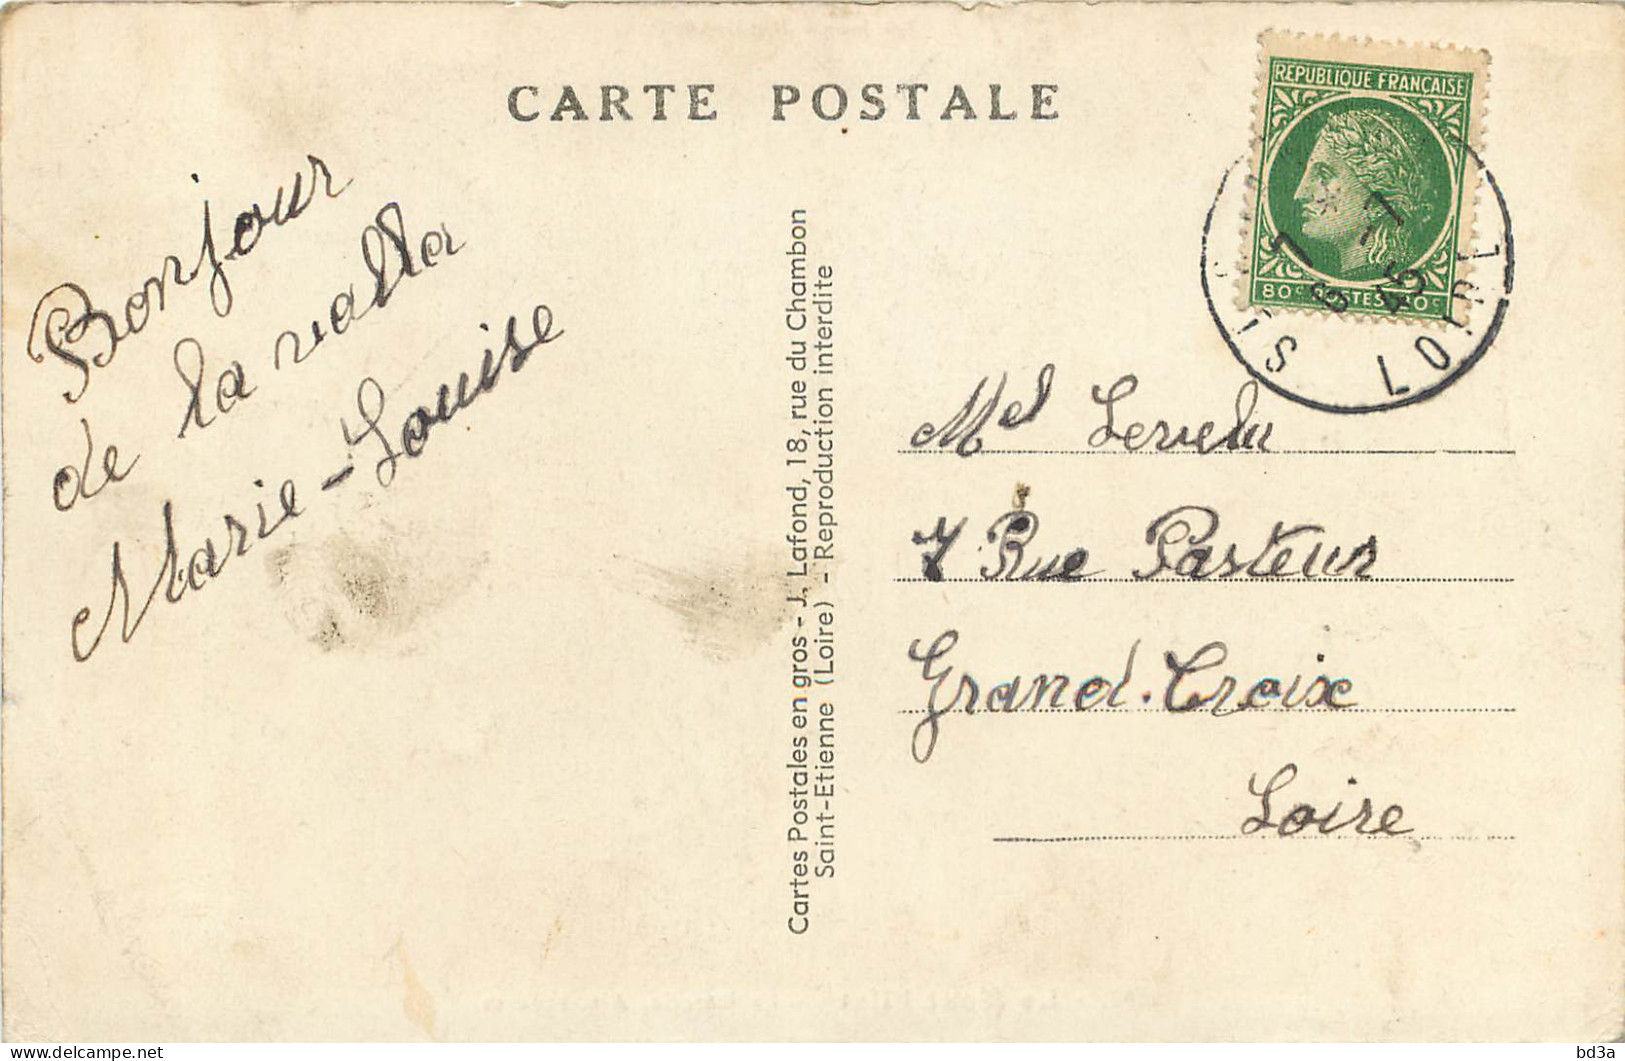 CARTE POSTALE
REPUBLIQUE FRANÇAISE
80c POSTES 80c
LOIRE
Bonjour
de la valla
Marie-Louise
Cartes Postales en gros - J. Lafond, 18, rue du Chambon
Saint-Etienne (Loire) - Reproduction interdite
Mel
7 Rue Pasteur
Grand.Croix
Loire
bd3a